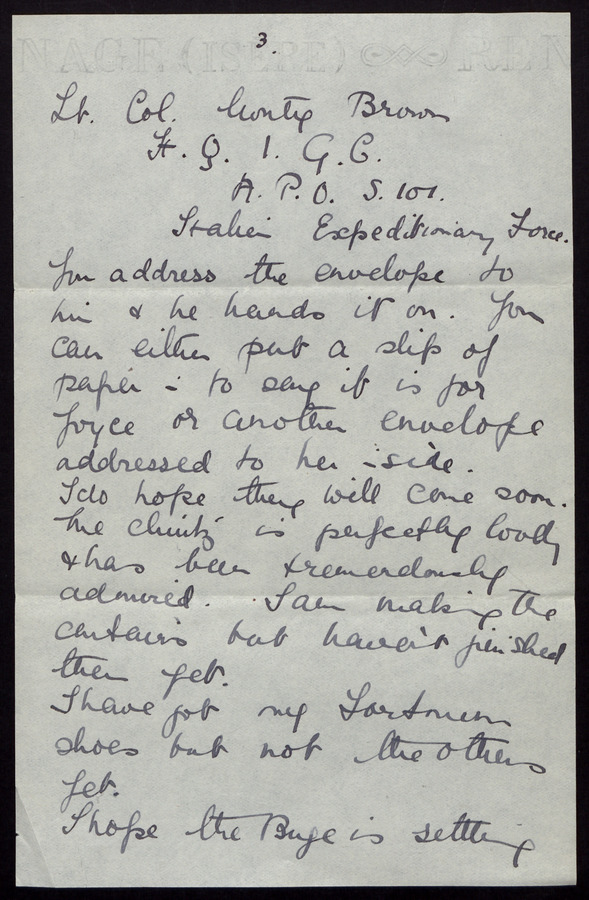 3.
Lt. Col. Monty Brown
H. Q. 1. G. C.
A. P. O. S. 101.
Italien Expeditionary Force.
You address the envelope to
him & he hands it on. You
can either put a slip of
paper in to say it is for
Joyce or another envelope
addressed to her inside.
I do hope they will come soon.
The chintz is perfectly lovely
& has been tremendously
admired. I am making the
curtains but haven't finished
them yet.
I have got my
shoes but not the others
yet.
I hope the is settling